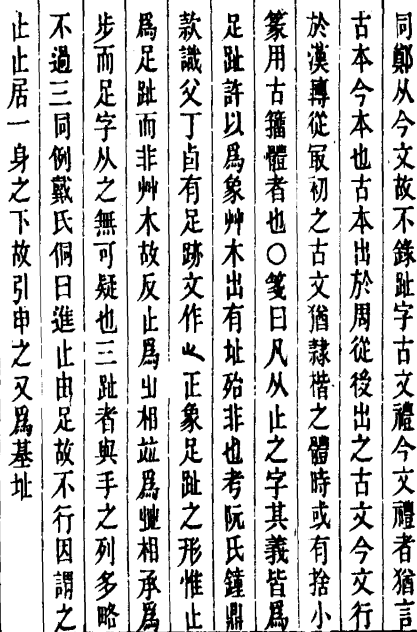 同鄭从今文故不錄趾字古文禮今文禮者猶言
古本今本也古本出於周從後出之古文今文行
於漢轉從冣初之古文猶隸楷之體時或有捨小
篆用古籒體者也○箋曰凡从止之字其義皆爲
足趾許以爲象艸木出有址殆非也考阮氏鐘鼎
款識父丁卣有足跡文作正象足趾之形惟止
爲足趾而非艸木故反止爲相竝爲相承爲
步而足字从之無可疑也三趾者與手之列多略
不過三同例戴氏侗曰進止由足故不行因謂之
止止居一身之下故引申之又爲基址